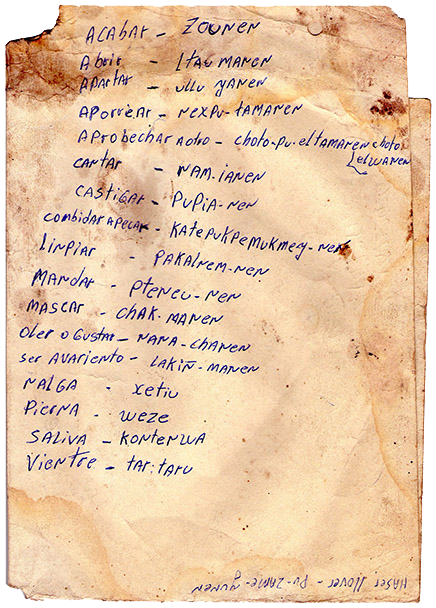 ACABAR - ZOUNEN
Abrir - Ltau MANEN
APARTAR - ullu yANEN
APORREAR - NEXPU-TAMANEN
APROBECHAR AOTRO - CHOTO-PU.ELTAMAREN CHOTO
LELWANEN
CANTAR - NAM-IANEN
CASTIGAR - PUPIA-NEN
COMBIDAR APELEAR - KATEPUKPEMUKMEY-NEN
LINPIAR - PAKALNEM-NEN
MANDAR - PTENCU-NEN
MASCAR - CHAK-MANEN
OLER O GUSTAR - NANA-CHANEN
SER AVARIENTO - LAKIÑ-MANEN
NALGA - XETIU
PIERNA - WEZE
SALIVA - KONTENWA
VIENTRE - TAR:TARU
HASER LLOVER - PU-ZAME-yUNEN